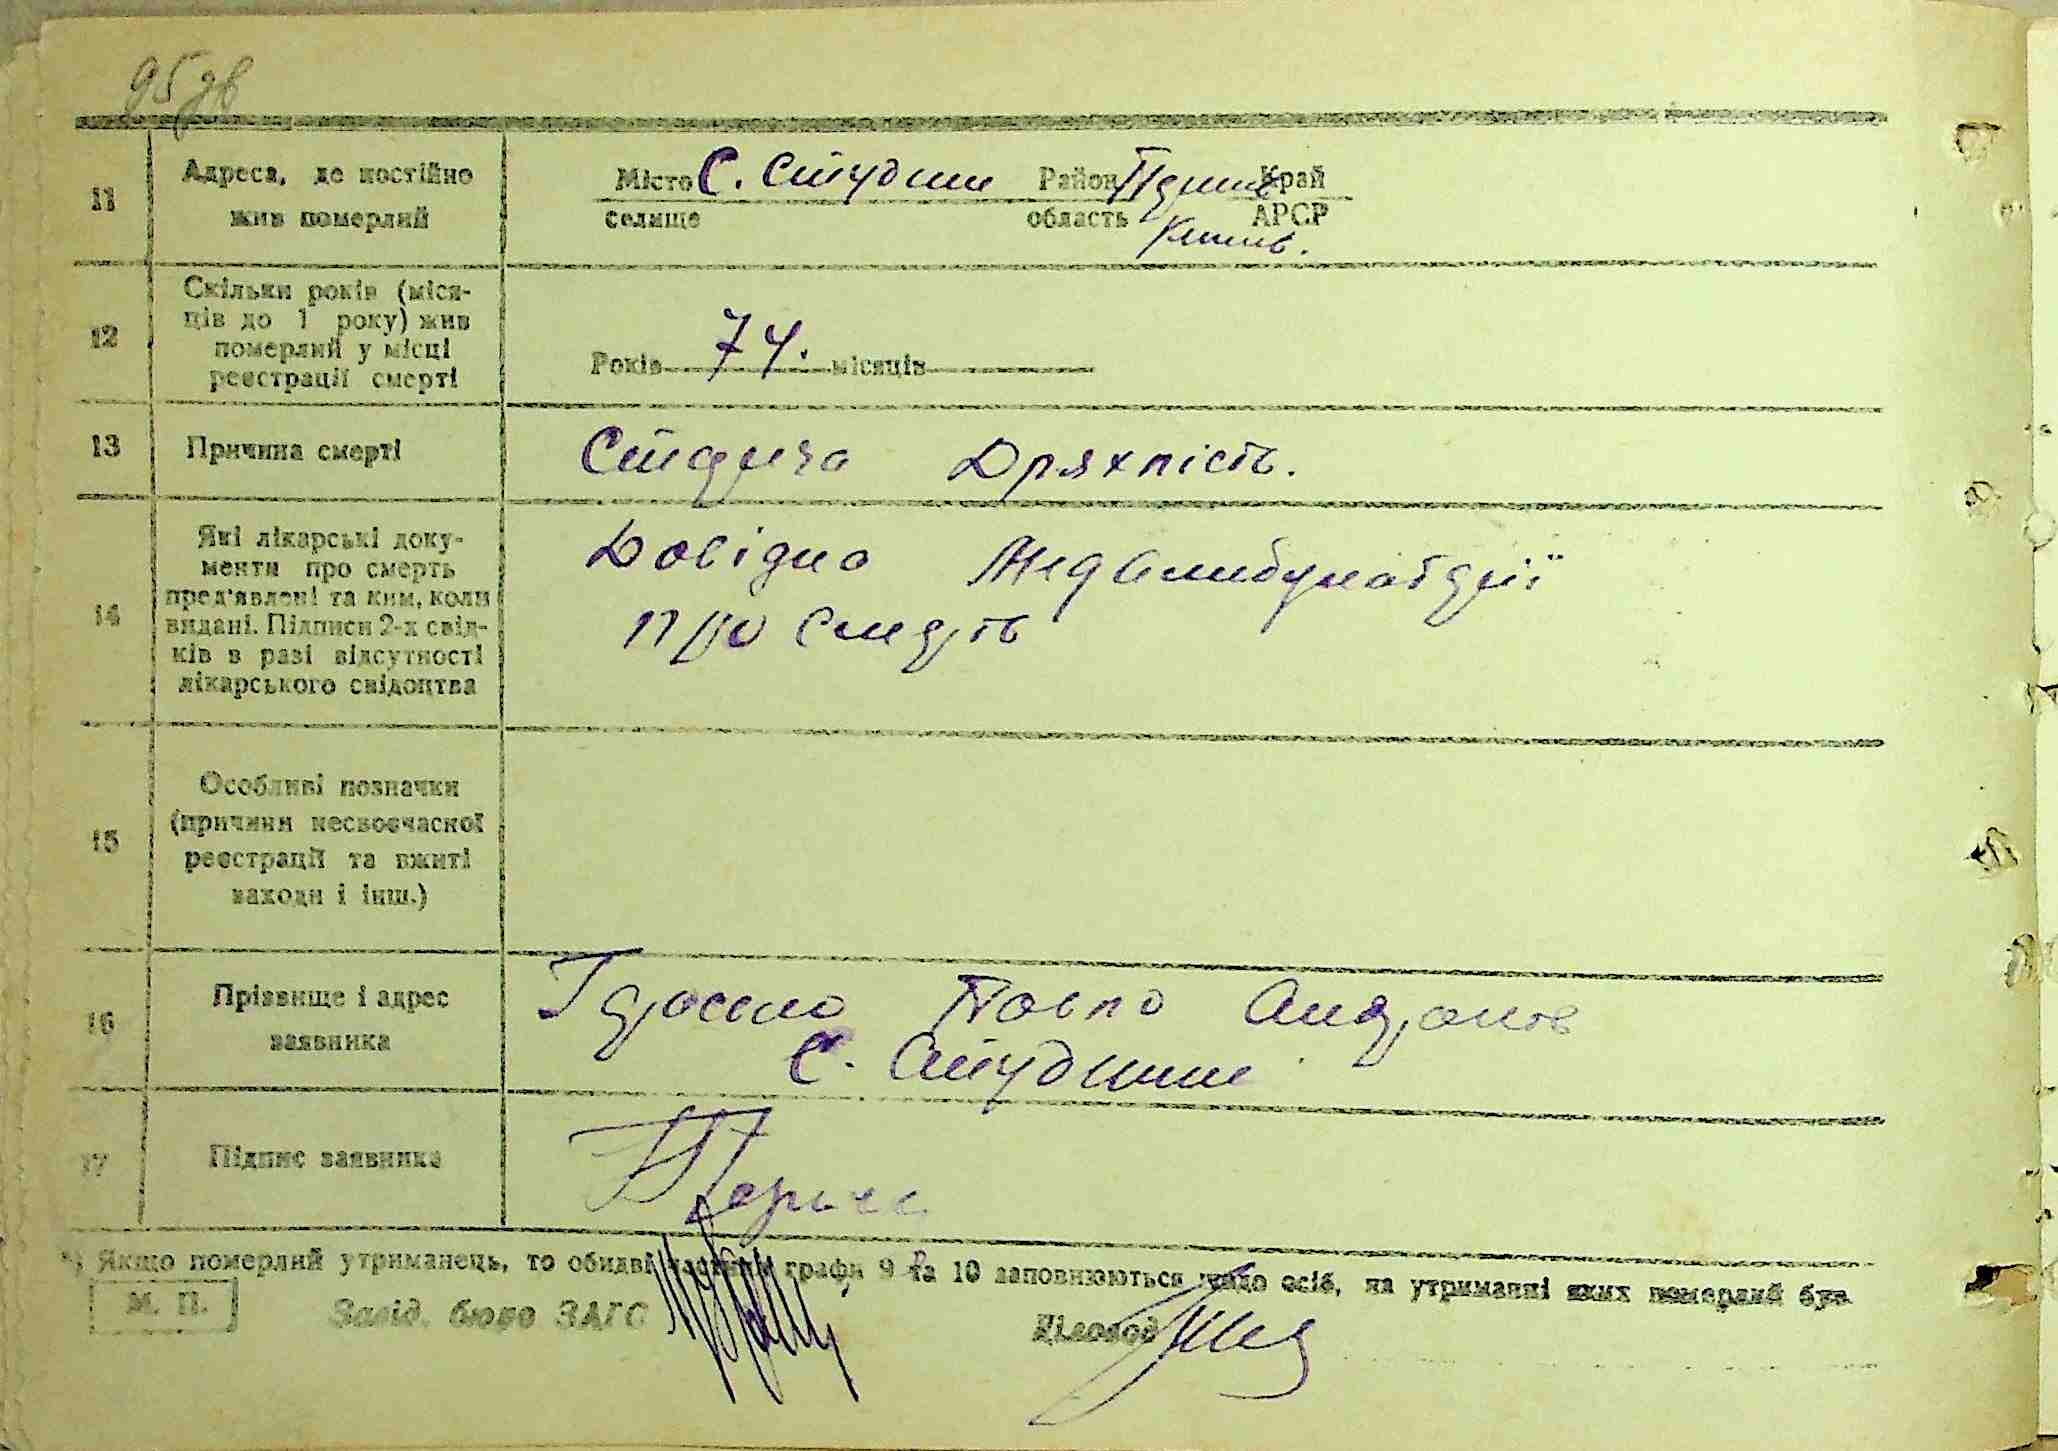 95 зв
11
Адреса, де постійно
жив померлий
Місто С. Студини Район Край
селище область АРСР
12
Скільки років (міся-
ців до 1 року) жив
померлий у місці
реєстрації смерті
Років 74. місяців
13
Причина смерті
Стареча Дряхлість.
14
Які лікарські доку-
менти про смерть
пред'явлені та ким, коли
видані. Підписи 2-х свід-
ків в разі відсутності
лікарського свідоцтва
Довідка Медамбулаторії
про смерть
15
Особливі позначки
(причини несвоєчасної
реєстрації та вжиті
заходи і інш.)
16
Прізвище і адрес
заявника
Павло
С. Студини
17
Підпис заявника
*) Якщо померлий утриманець, то обидві частини графи 9 та 10 заповнюються щодо осіб, на утриманні яких померлий був
М. П.
Завід. бюро ЗАГС
Діловод